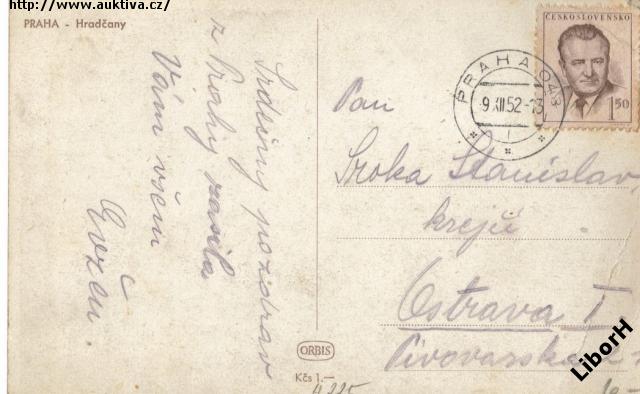 http://www.auktiva.cz/
PRAHA - Hradčany
Srdečný pozdrav
z Prahy zasílá
Vám všem
ČESKOSLOVENSKO
1 50
PRAHA 048
9.XII.52-13
1
Pan
Sroka Stanislav
krejčí
Ostrava I.
Pivovarská
ORBIS
Kčs 1.—
4225
LiborH